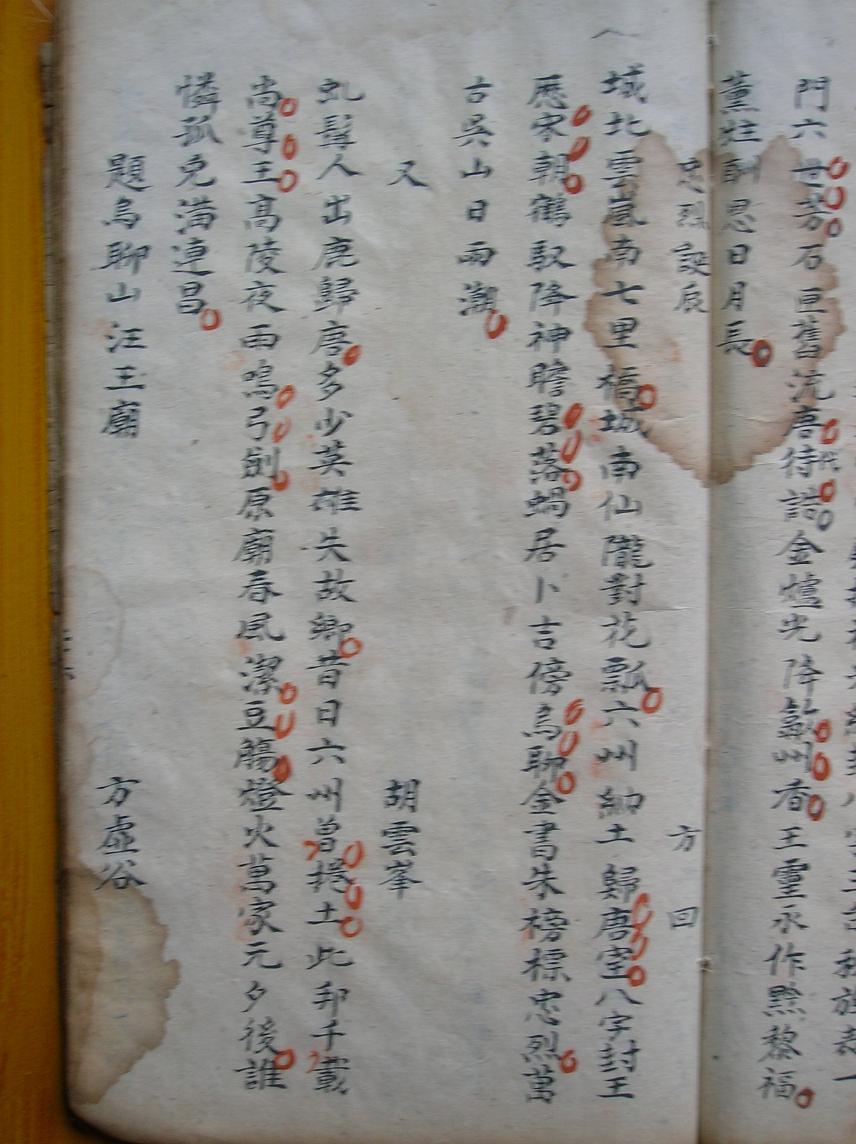 門六世芳石亘舊流唐代待誥金爐光降歙州香王靈永作黟黎福
薰炷酬恩日月長
忠烈誕辰 方回
城北雲嵐南七里橋城南仙隴對花瓢六州納土歸唐室八字封王
歷宋朝鶴馭降神瞻碧落蝸居卜吉傍烏聊金書朱榜標忠烈萬
古吳山日雨潮
又 胡雲峯
虬髯人出鹿歸唐多少英雄失故鄉昔日六州曾挈土此邦千載
尚尊王高陵夜雨鳴弓劍原廟春風潔豆觴燈火萬家元夕後誰
憐孤兔滿連昌
題烏聊山汪王廟 方虛谷